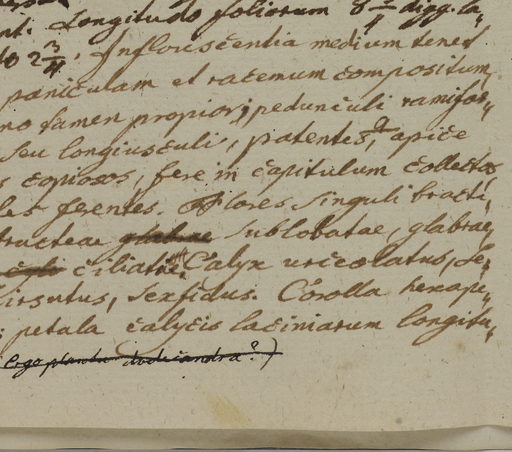 nt. Longitudo foliorum 8 digg. la-
do 2 3/4. Inflorescentia medium tenet
paniculam et racemum compositum,
no tamen propior; pedunculi ramifor-
seu longiusculi, patentes, apice
s copiosos, fere in capitulum collectos
les ferentes. Flores singuli bracti-
bracteae sublobatae, glabrae,
ciliatae. Calyx urceolatus, se-
hirsutus, sexfidus. Corolla hexape-
: petala calycis laciniarum longitu-
(ergo planta dodecandra?)